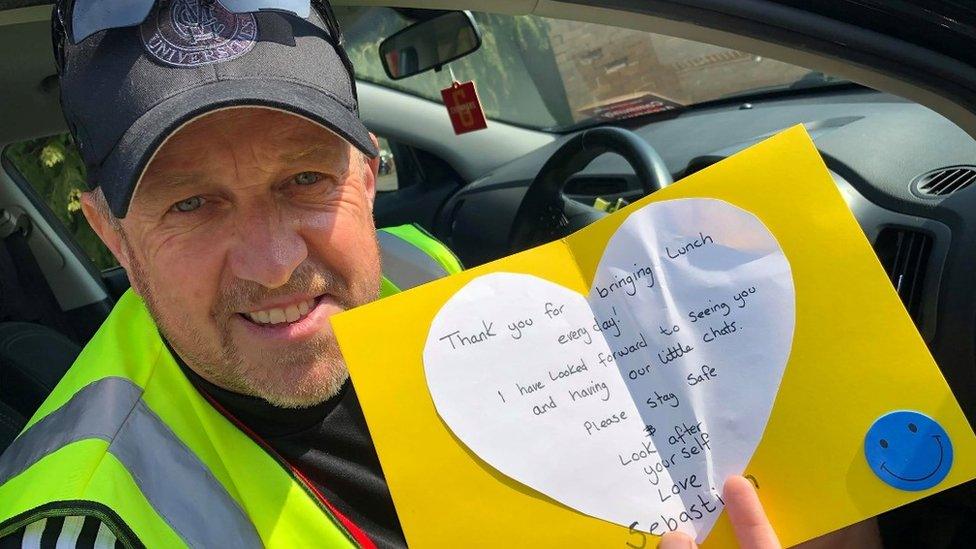 UNIVERSITY
Thank you for bringing Lunch
every day!
I have Looked forward to seeing you
and having our little chats.
Please stay safe
&
Look after
your self
Love
Sebasti